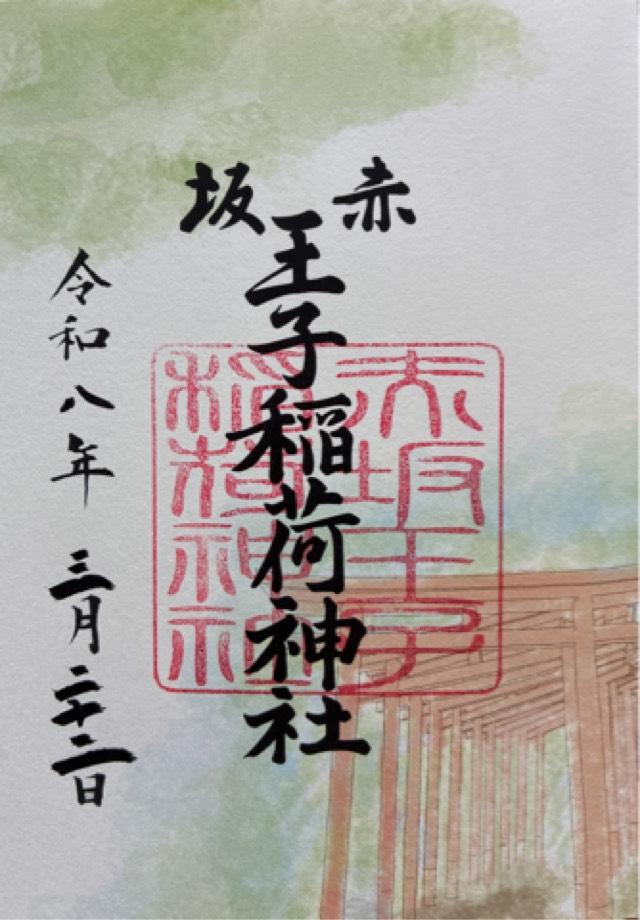 赤坂
王子稲荷神社
赤坂王子
稲荷神社
令和八年 三月二十二日